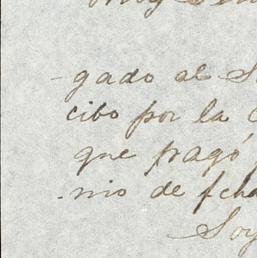 -gado al S
cibo por la
que pagó
-nio de fcha
Soy